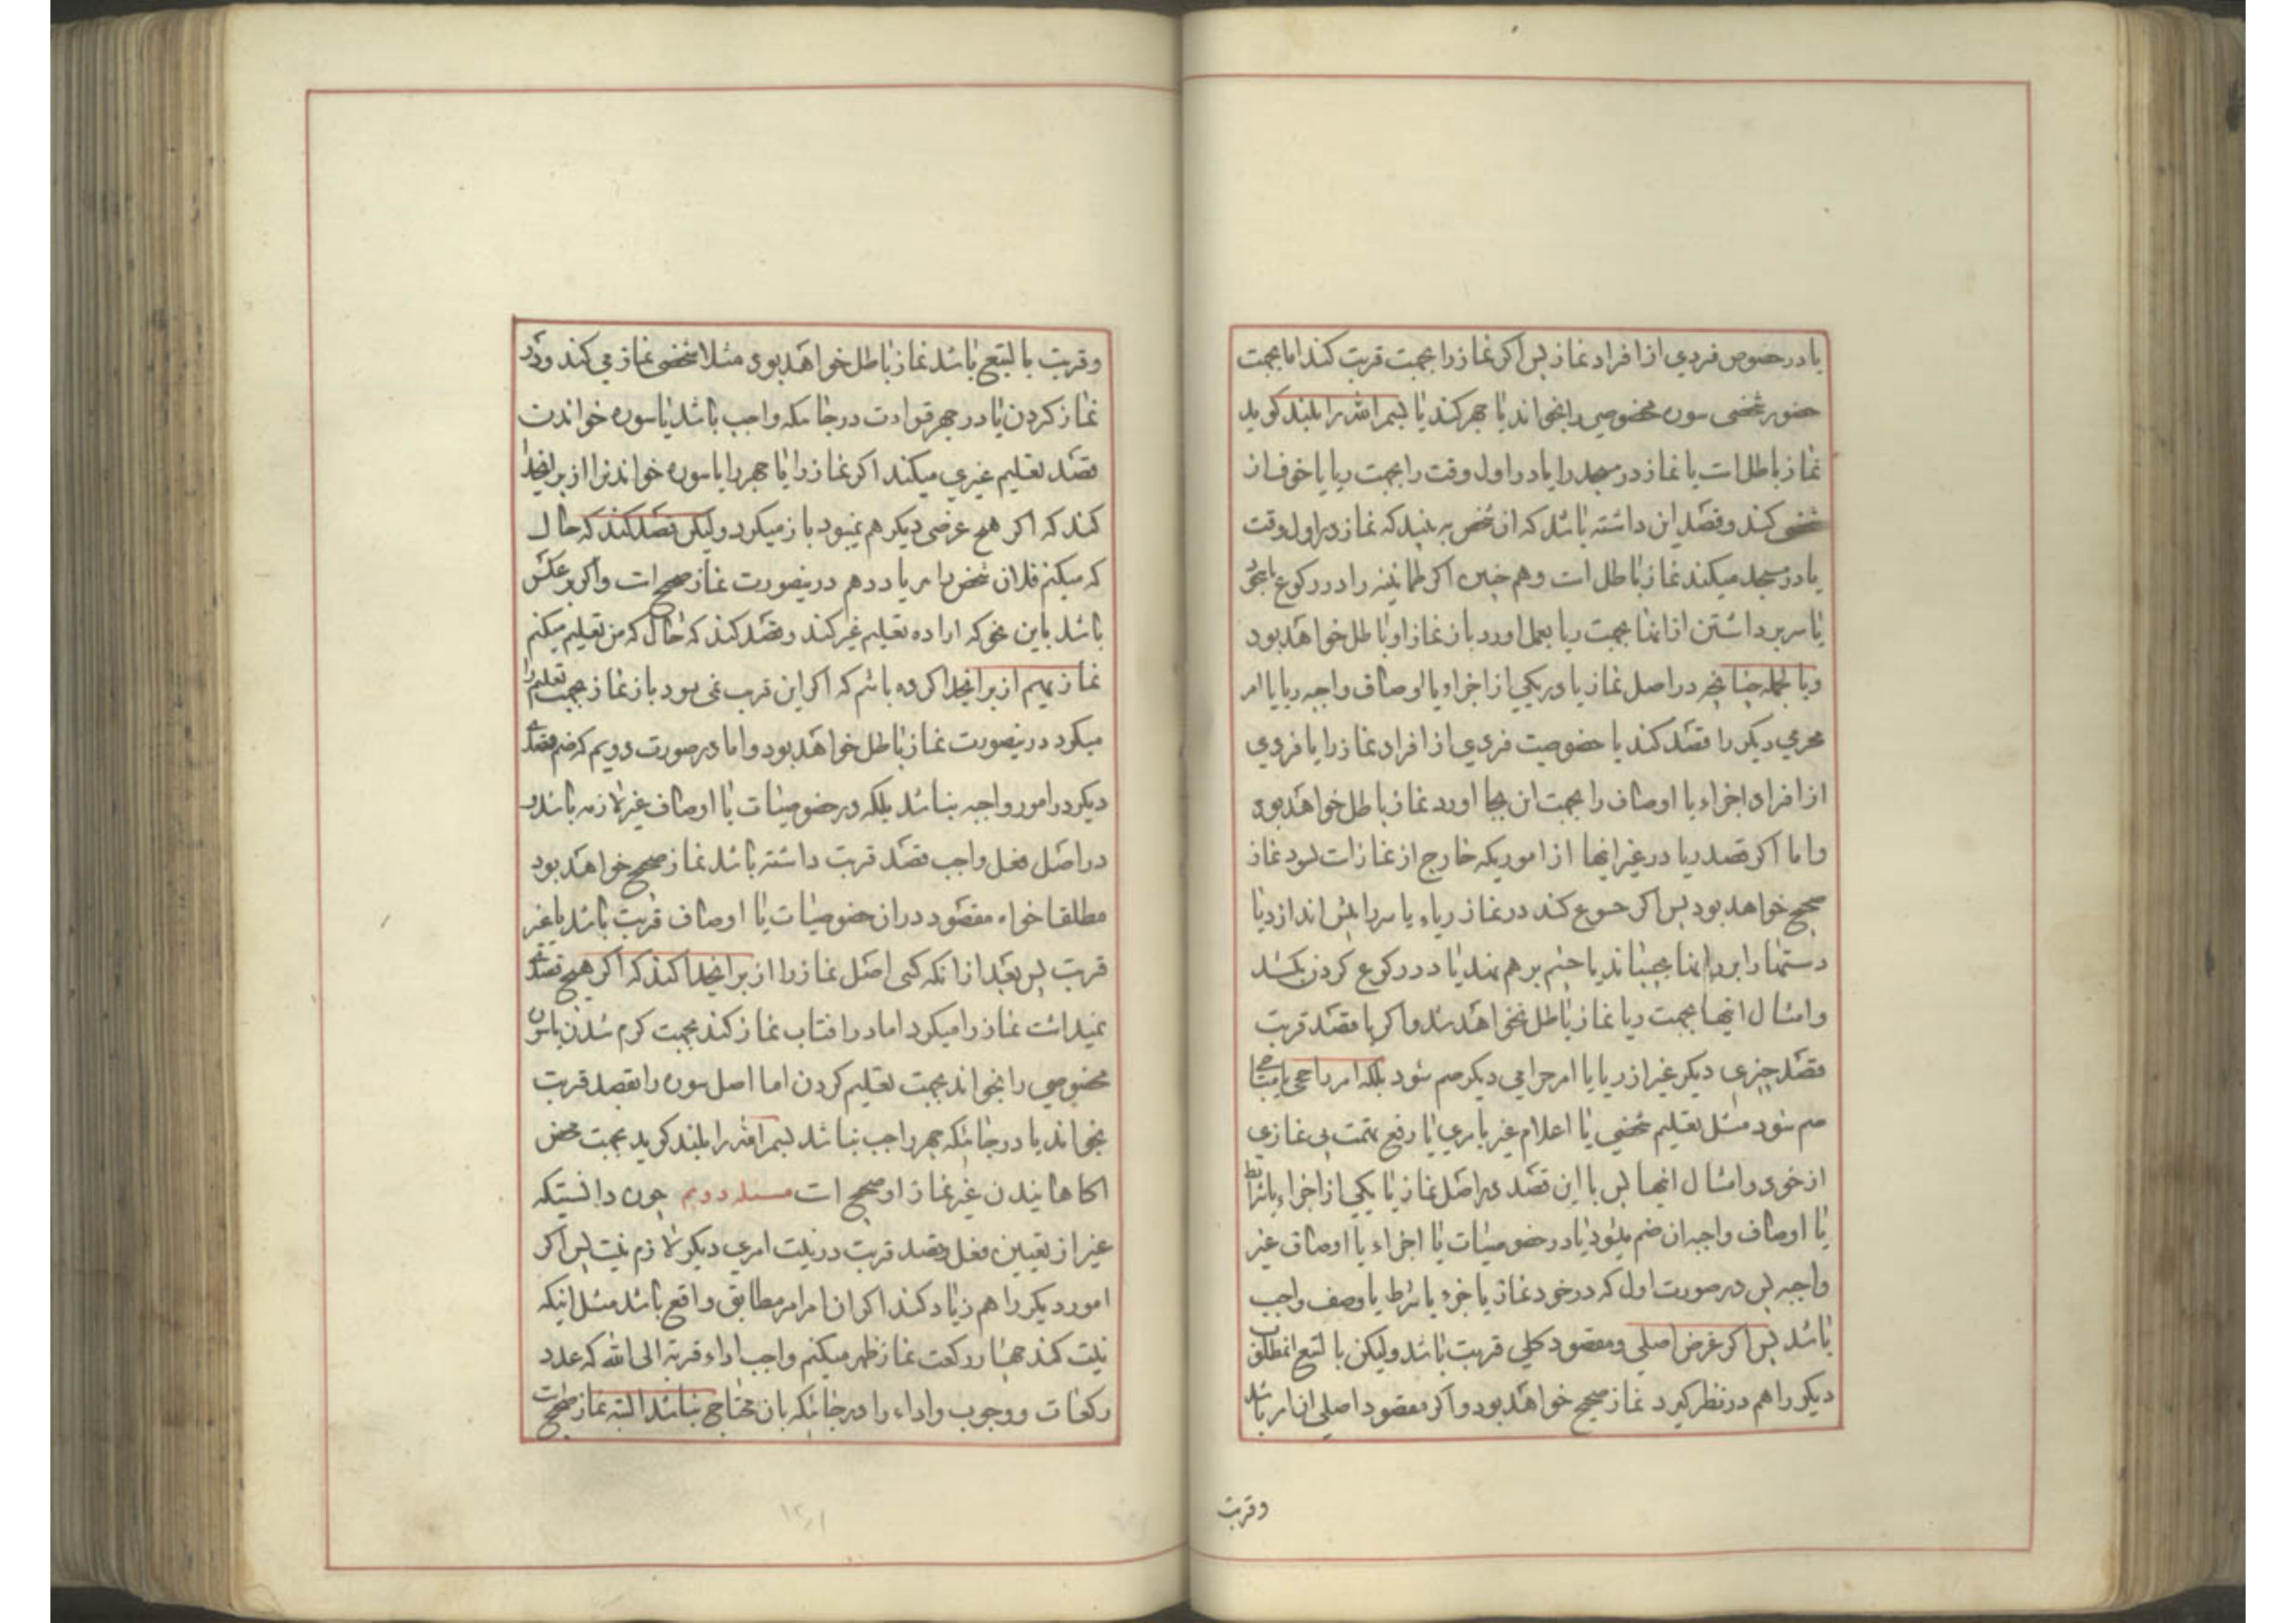 یا در خصوص فردی از افراد نماز پس اکر نماز را بجهت قربت کند اما بجهت
حضور شخصی سوره مخصوصی را بخواند یا جهر کند یا بسم الله را بلند کوید
نماز باطل است یا نماز در مسجد را یا در اول وقت را بجهت ریا یا خوف از
شخصی کند و قصد این داشته باشد که آن شخص به بیند که نماز در اول وقت
یا در مسجد میکند نماز باطل است و هم چنین اکر طمانینه را در رکوع یا سجود
یا سر برداشتن از انها بجهت ریا بعمل اورد باز نماز او باطل خواهد بود
و بالجمله چنانچه در اصل نماز یا در یکی از اجزاء یا اوصاف واجبه ریا یا امر
محرمی دیکر را قصد کند یا خصوصیت فردی از افراد نماز را یا فردی
از افراد اجزاء یا اوصاف را بجهت ان بجا اورد نماز باطل خواهد بود
و اما اکر قصد ریا در غیر اینها از اموریکه خارج از نماز است بود نماز
صحیح خواهد بود پس اکر خشوع کند در نماز ریاء یا سر را پیش اندازد یا
دستها را بر رانها بچسباند یا چشم بر هم نهد یا در رکوع کردن بکشد
و امثال اینها بجهت ریا نماز باطل نخواهد شد و اکر با قصد قربت
قصد چیزی دیکر غیر از ریا یا امر حرامی دیکر ضم شود بلکه امر راجحی یا مباحی
ضم شود مثل تعلیم شخصی یا اعلام غیر بامری یا رفع تهمت بی نمازی
از خود و امثال اینها پس با این قصد در اصل نماز یا یکی از اجزاء یا شرایط
یا اوصاف واجبه ان ضم میشود یا در خصوصیات یا اجزاء یا اوصاف غیر
واجبه پس در صورت اول که در خود نماز یا جزء یا شرط یا وصف واجب
باشد پس اکر غرض اصلی و مقصود کلی قربت باشد ولیکن بالتبع انمطلب
دیکر را هم در نظر کیرد نماز صحیح خواهد بود و اکر مقصود اصلی ان امر باشد
وقربت
وقربت بالتبع باشد نماز باطل خواهد بود مثلا شخصی نماز می کند و در
نماز کردن یا در جهر قراءت در جائیکه واجب باشد یا سوره خواندن
قصد تعلیم غیری میکند اکر نماز را یا جهر را یا سوره خواندنرا از برای خدا
کند که اکر هیچ غرضی دیکر هم نمیبود باز میکرد ولیکن قصد کند که حال
که میکنم فلان شخص را هم یاد دهم درینصورت نماز صحیح است و اکر بر عکس
باشد باین نحو که اراده تعلیم غیر کند و قصد کند که حال که من تعلیم میکنم
نماز هم از برای خدا کرده باشم که اکر این قربت نمی بود باز نماز بجهت تعلیم را
میکرد درینصورت نماز باطل خواهد بود و اما در صورت دویم که ضم قصد
دیکر در امور واجبه نباشد بلکه در خصوصیات یا اوصاف غیر لازمه باشد و
در اصل فعل واجب قصد قربت داشته باشد نماز صحیح خواهد بود
مطلقا خواه مقصود در ان خصوصیات یا اوصاف قربت باشد یا غیر
قربت پس بعد از انکه کسی اصل نماز را از برای خدا کند که اکر هیچ قصد
نمیداشت نماز را میکرد اما در افتاب نماز کند بجهت کرم شدن یا سوره
مخصوصی را بخواند بجهت تعلیم کردن اما اصل سوره را بقصد قربت
بخواند یا در جائیکه جهر واجب نباشد بسم الله را بلند کوید بجهت محض
اکاهانیدن غیر نماز او صحیح است مسئله دویم چون دانستیکه
غیر از تعیین فعل و قصد قربت در نیت امری دیکر لازم نیست پس اکر
امور دیکر را هم زیاد کند اکر ان امر امر مطابق واقع باشد مثل اینکه
نیت کند چهار رکعت نماز ظهر میکنم واجب اداء قربة الی الله که عدد
رکعات و وجوب و اداء را در جائیکه بان محتاج نباشد البته نماز صحیح است